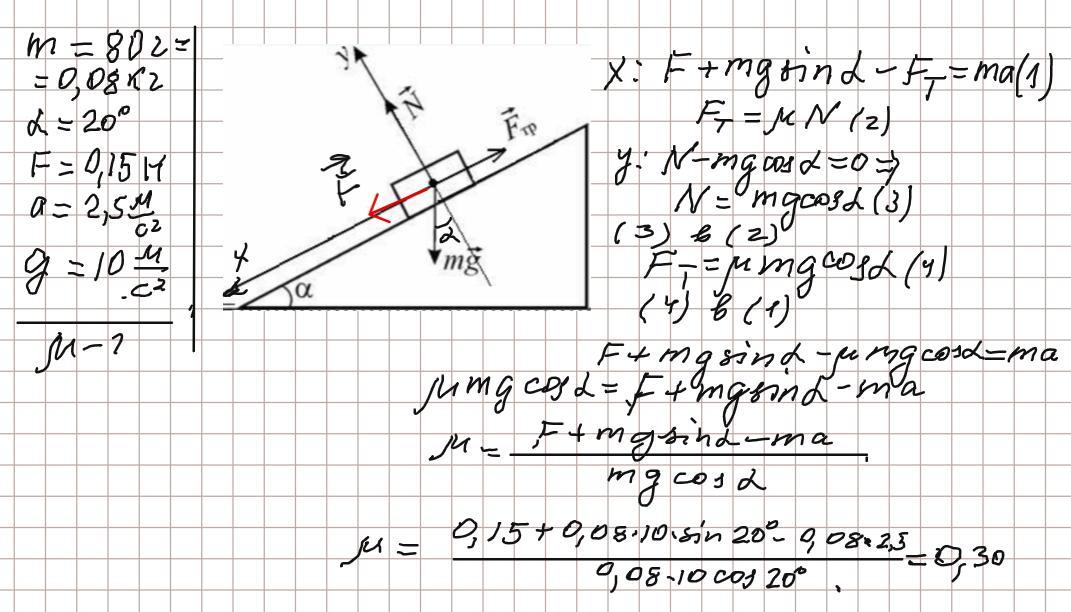 m = 80г =
= 0,08кг
α = 20°
F = 0,15Н
a = 2,5 м/с²
g = 10 м/с²
μ - ?
y
N
Fтр
F
x
α
mg
α
x: F + mg sin α - Fт = ma (1)
Fт = μN (2)
y: N - mg cos α = 0 ⇒
N = mg cos α (3)
(3) в (2)
Fт = μ mg cos α (4)
(4) в (1)
F + mg sin α - μ mg cos α = ma
μ mg cos α = F + mg sin α - ma
μ = (F + mg sin α - ma) / (mg cos α)
μ = (0,15 + 0,08·10·sin 20° - 0,08·2,5) / (0,08·10 cos 20°) = 0,30